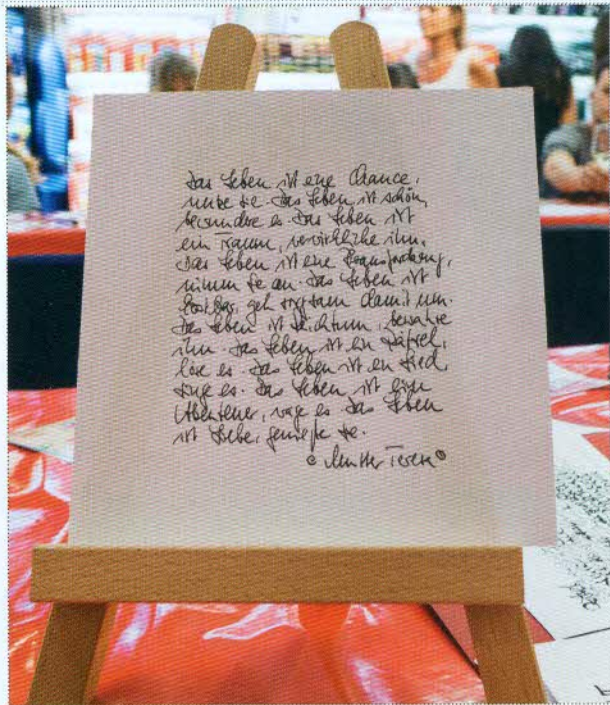 Das Leben ist eine Chance,
nutze sie. Das Leben ist schön,
bewundre es. Das Leben ist
ein Traum, verwirkliche ihn.
Das Leben ist eine Herausforderung,
nimm sie an. Das Leben ist
kostbar, geh sorgsam damit um.
Das Leben ist Reichtum, bewahre
ihn. Das Leben ist ein Rätsel,
löse es. Das Leben ist ein Lied,
singe es. Das Leben ist ein
Abenteuer, wage es. Das Leben
ist Liebe, genieße sie.
Mutter Teresa